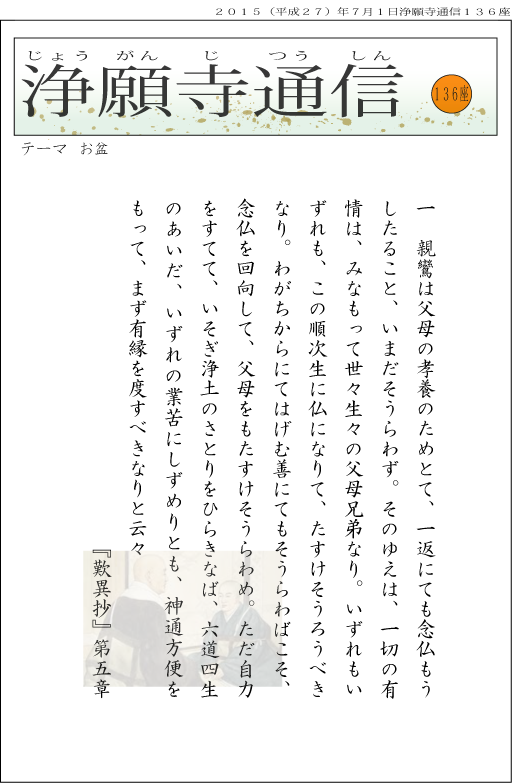 ２０１５（平成２７）年７月１日浄願寺通信１３６座
じょう がん じ つう しん
浄願寺通信
136座
テーマ　お盆
一　親鸞は父母の孝養のためとて、一返にても念仏もう
したること、いまだそうらわず。そのゆえは、一切の有
情は、みなもって世々生々の父母兄弟なり。いずれもい
ずれも、この順次生に仏になりて、たすけそうろうべき
なり。わがちからにてはげむ善にてもそうらわばこそ、
念仏を回向して、父母をもたすけそうらわめ。ただ自力
をすてて、いそぎ浄土のさとりをひらきなば、六道四生
のあいだ、いずれの業苦にしずめりとも、神通方便を
もって、まず有縁を度すべきなりと云々
『歎異抄』第五章